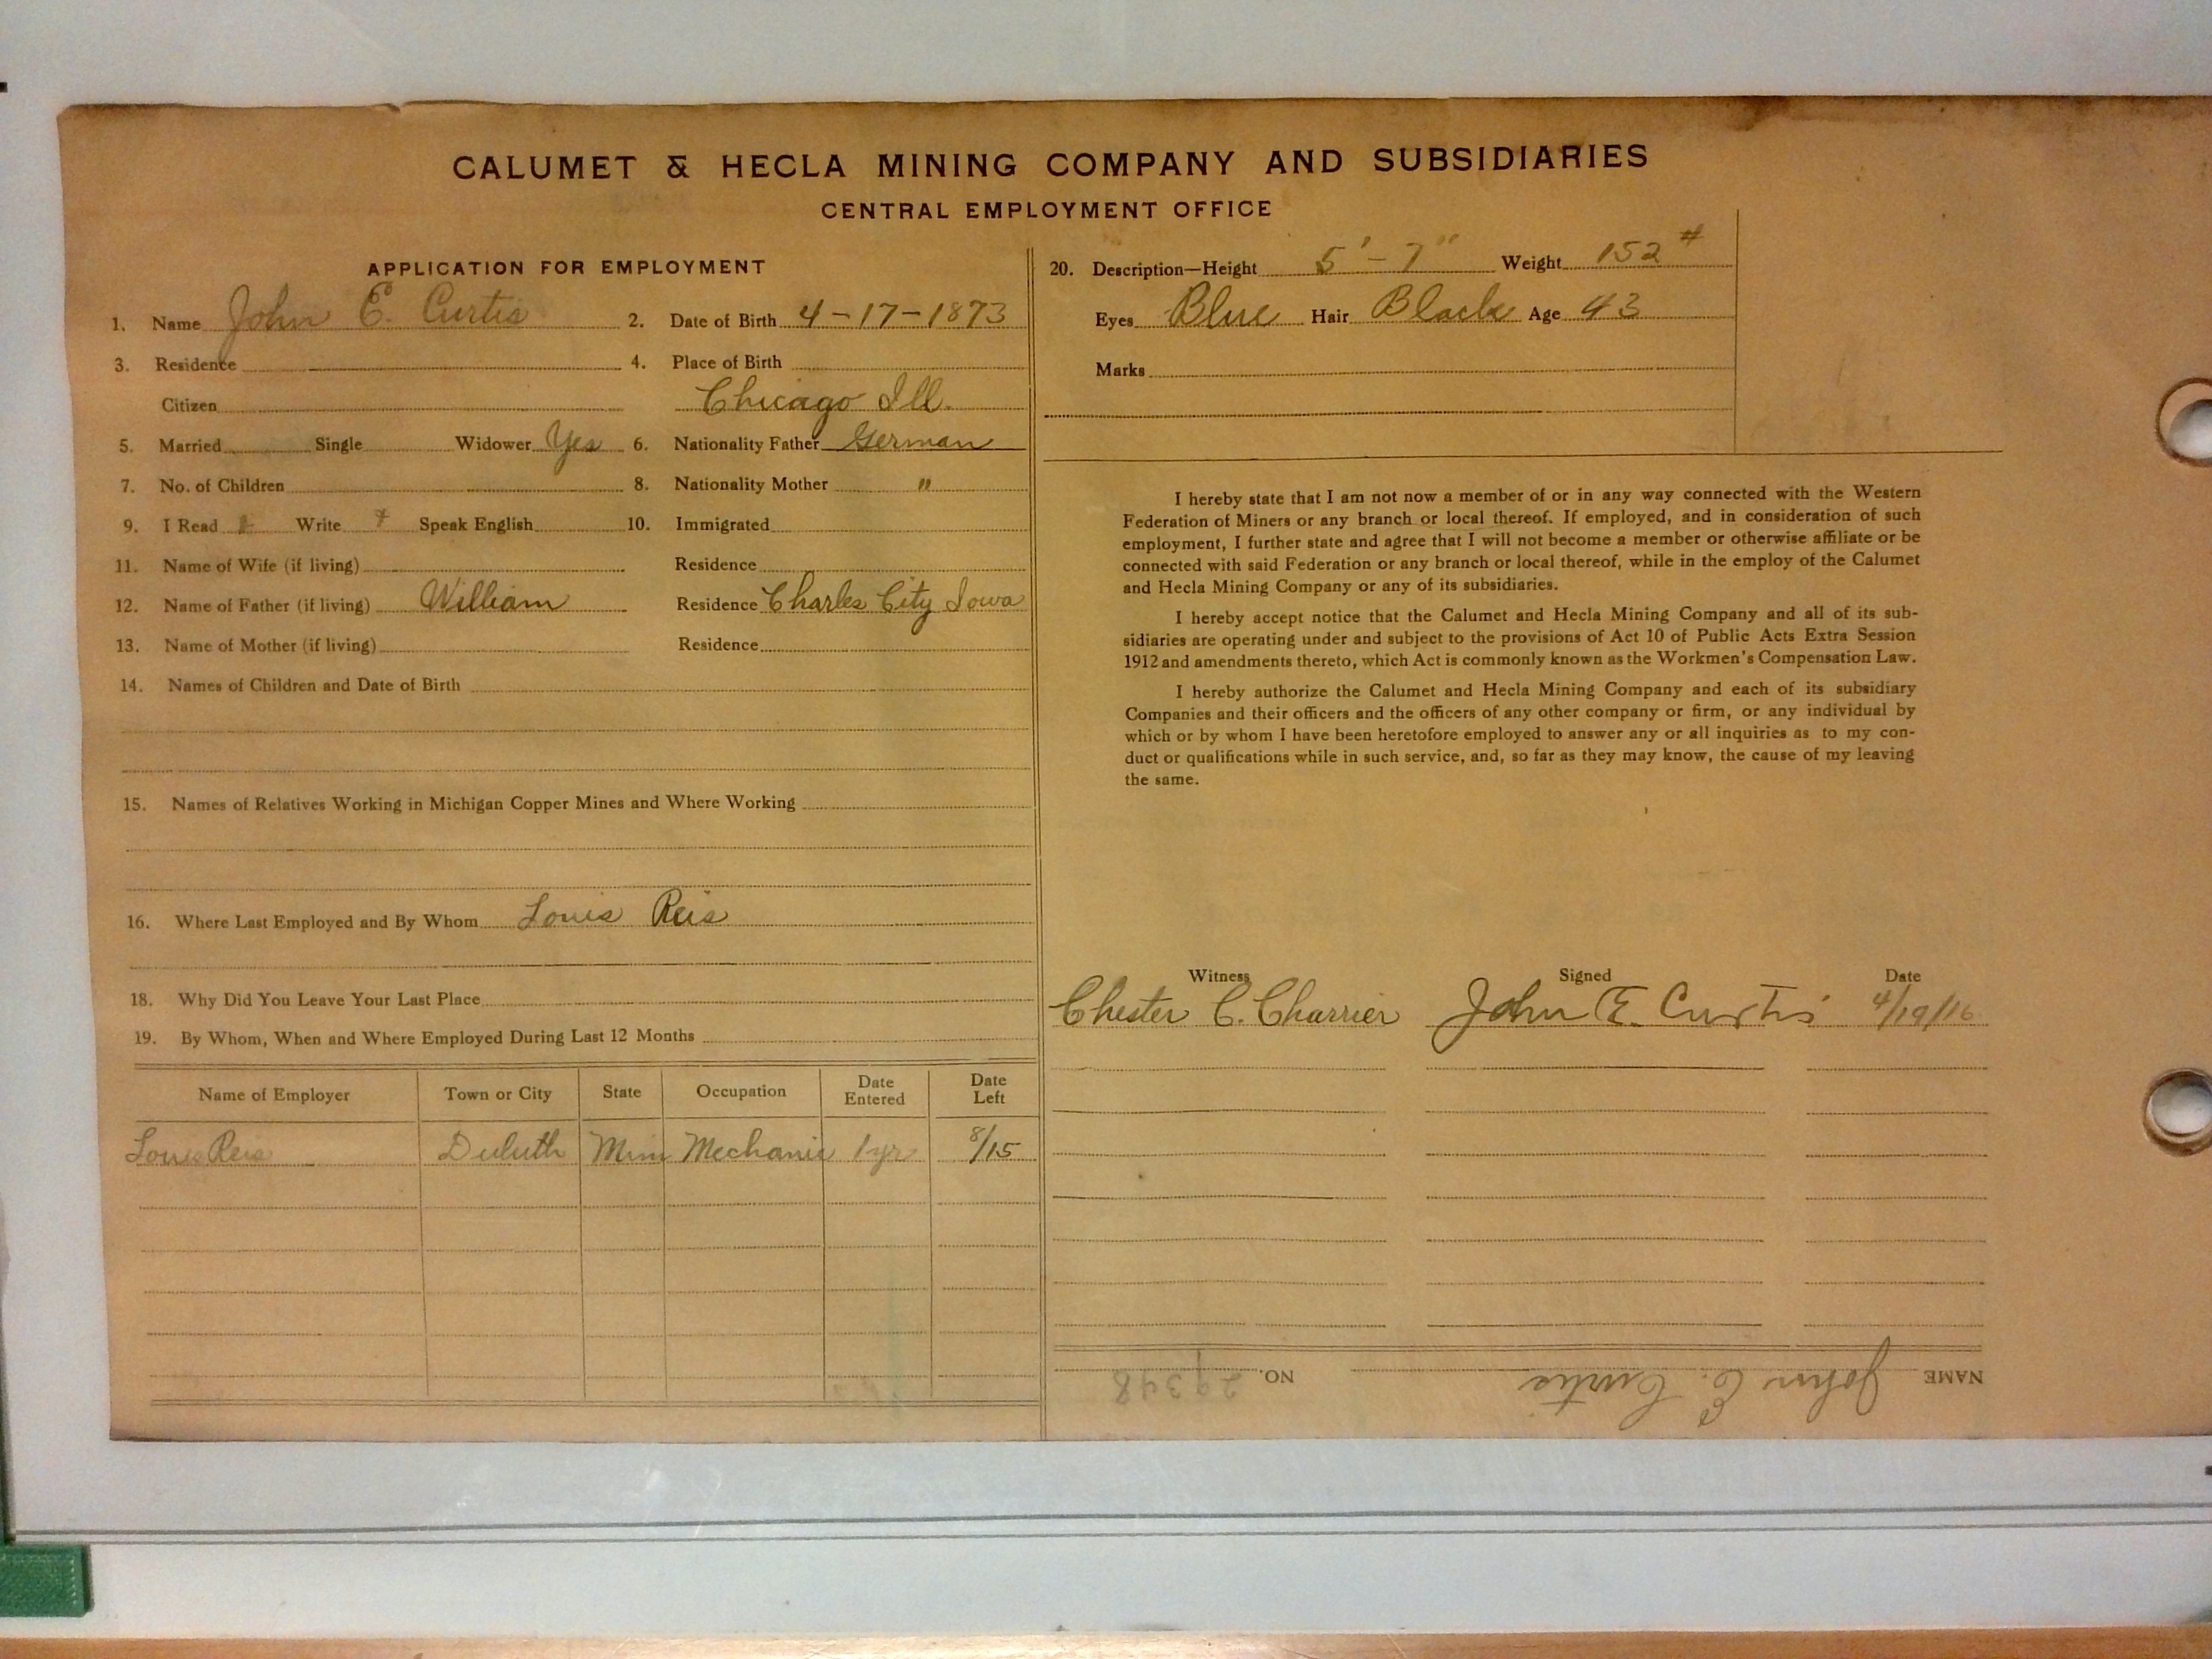 CALUMET & HECLA MINING COMPANY AND SUBSIDIARIES
CENTRAL EMPLOYMENT OFFICE
APPLICATION FOR EMPLOYMENT
1. Name John E. Curtis 2. Date of Birth 4-17-1873
3. Residence 4. Place of Birth
Citizen Chicago Ill.
5. Married Single Widower Yes 6. Nationality Father German
7. No. of Children 8. Nationality Mother "
9. I Read Write Speak English 10. Immigrated
11. Name of Wife (if living) Residence
12. Name of Father (if living) William Residence Charles City Iowa
13. Name of Mother (if living) Residence
14. Names of Children and Date of Birth
15. Names of Relatives Working in Michigan Copper Mines and Where Working
16. Where Last Employed and By Whom Louis Reis
18. Why Did You Leave Your Last Place
19. By Whom, When and Where Employed During Last 12 Months
Name of Employer Town or City State Occupation Date Entered Date Left
Louis Reis Duluth Minn Mechanic 1 yr 8/15
20. Description—Height 5' - 7" Weight 152 #
Eyes Blue Hair Black Age 43
Marks
I hereby state that I am not now a member of or in any way connected with the Western
Federation of Miners or any branch or local thereof. If employed, and in consideration of such
employment, I further state and agree that I will not become a member or otherwise affiliate or be
connected with said Federation or any branch or local thereof, while in the employ of the Calumet
and Hecla Mining Company or any of its subsidiaries.
I hereby accept notice that the Calumet and Hecla Mining Company and all of its sub-
sidiaries are operating under and subject to the provisions of Act 10 of Public Acts Extra Session
1912 and amendments thereto, which Act is commonly known as the Workmen's Compensation Law.
I hereby authorize the Calumet and Hecla Mining Company and each of its subsidiary
Companies and their officers and the officers of any other company or firm, or any individual by
which or by whom I have been heretofore employed to answer any or all inquiries as to my con-
duct or qualifications while in such service, and, so far as they may know, the cause of my leaving
the same.
Witness Signed Date
Chester C. Charrier John E. Curtis 4/19/16
NAME John E. Curtis NO. 29348